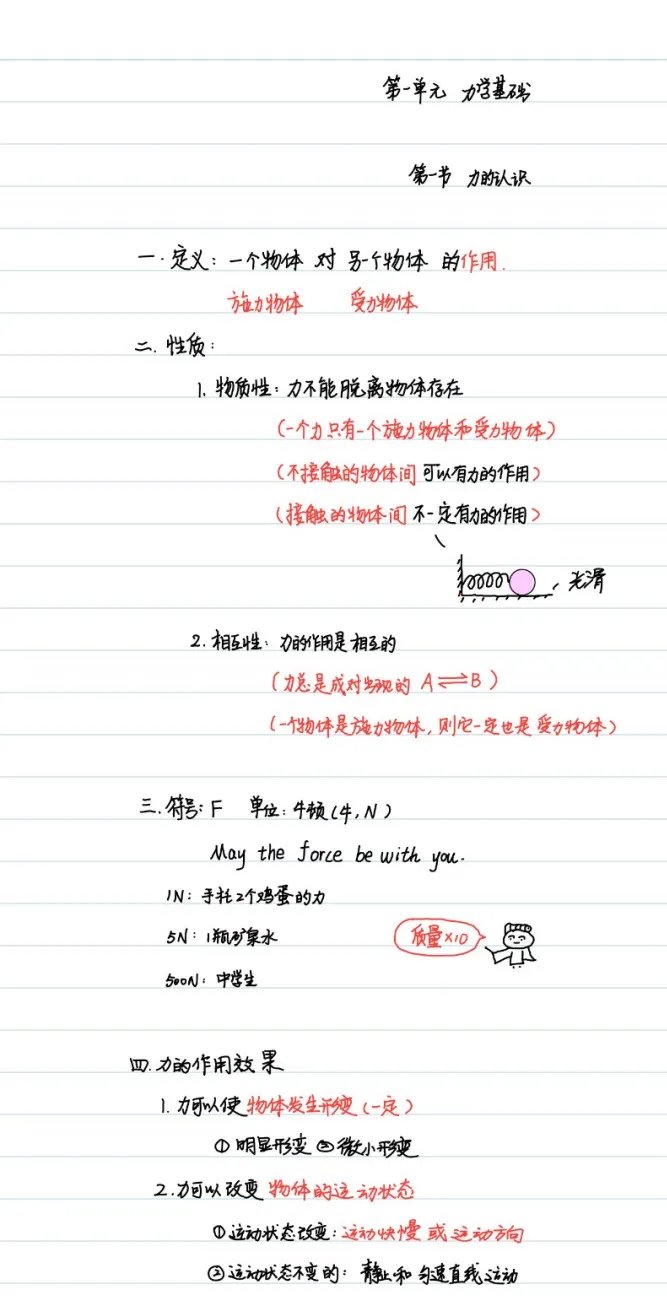 第一单元 力学基础
第一节 力的认识
一.定义：一个物体 对 另一个物体 的作用.
施力物体 受力物体
二.性质：
1.物质性：力不能脱离物体存在
（一个力只有一个施力物体和受力物体）
（不接触的物体间 可以有力的作用）
（接触的物体间 不一定有力的作用）
光滑
2.相互性：力的作用是相互的
（力总是成对出现的 A⇌B）
（一个物体是施力物体，则它一定也是受力物体）
三.符号：F 单位：牛顿（牛，N）
May the force be with you.
1N：手托2个鸡蛋的力
5N：1瓶矿泉水
质量×10
500N：中学生
四.力的作用效果
1.力可以使物体发生形变（一定）
①明显形变 ②微小形变
2.力可以改变物体的运动状态
①运动状态改变：运动快慢或运动方向
②运动状态不变的：静止和匀速直线运动